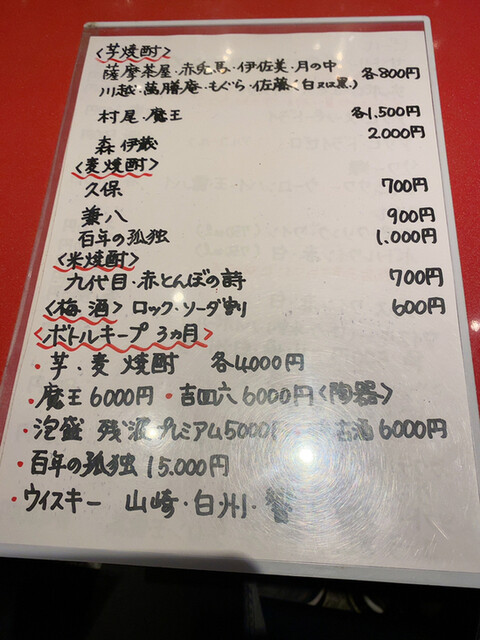 <芋焼酎>
薩摩茶屋・赤兎馬・伊佐美・月の中
川越・萬膳庵・もぐら・佐藤(白又は黒) 各800円
村尾・魔王 各1,500円
森伊蔵 2000円
<麦焼酎>
久保 700円
兼八 900円
百年の孤独 1,000円
<米焼酎>
九代目・赤とんぼの詩 700円
<梅酒> ロック・ソーダ割 600円
<ボトルキープ 3ヵ月>
・芋・麦 焼酎 各4,000円
・魔王 6000円 ・吉四六 6000円<陶器>
・泡盛 残波プレミアム5000円 古酒 6000円
・百年の孤独 15.000円
・ウィスキー 山崎・白州・響